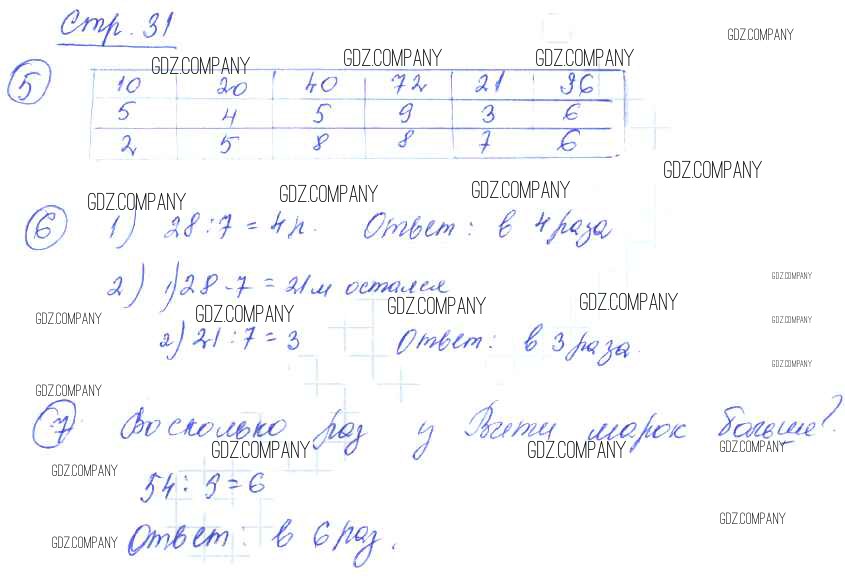 Стр. 31
GDZ.COMPANY
GDZ.COMPANY GDZ.COMPANY GDZ.COMPANY
5 10 20 40 72 21 36
5 4 5 9 3 6
2 5 8 8 7 6
GDZ.COMPANY
GDZ.COMPANY GDZ.COMPANY GDZ.COMPANY
6 1) 28 : 7 = 4 р. Ответ : в 4 раза
GDZ.COMPANY
2) 1) 28 - 7 = 21 м остался
GDZ.COMPANY GDZ.COMPANY GDZ.COMPANY GDZ.COMPANY GDZ.COMPANY
2) 21 : 7 = 3 Ответ : в 3 раза.
GDZ.COMPANY
GDZ.COMPANY
7 Восколько раз у Вити марок больше?
GDZ.COMPANY GDZ.COMPANY GDZ.COMPANY
GDZ.COMPANY
54 : 9 = 6
GDZ.COMPANY
GDZ.COMPANY Ответ : в 6 раз.